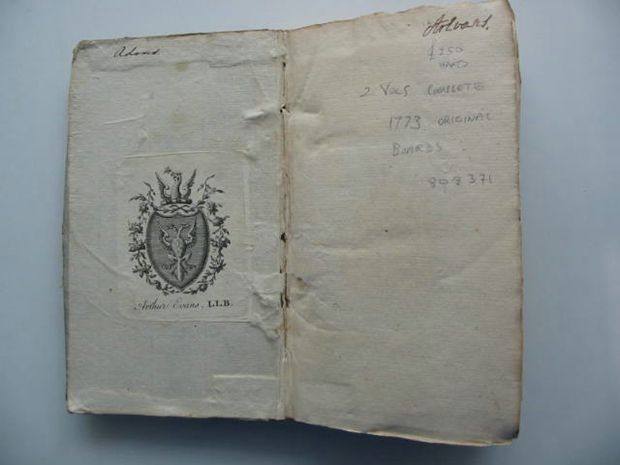 Arthur Evans, LL.B.
£250
2 VOLS COMPLETE
1773 ORIGINAL
BOARDS.
898371